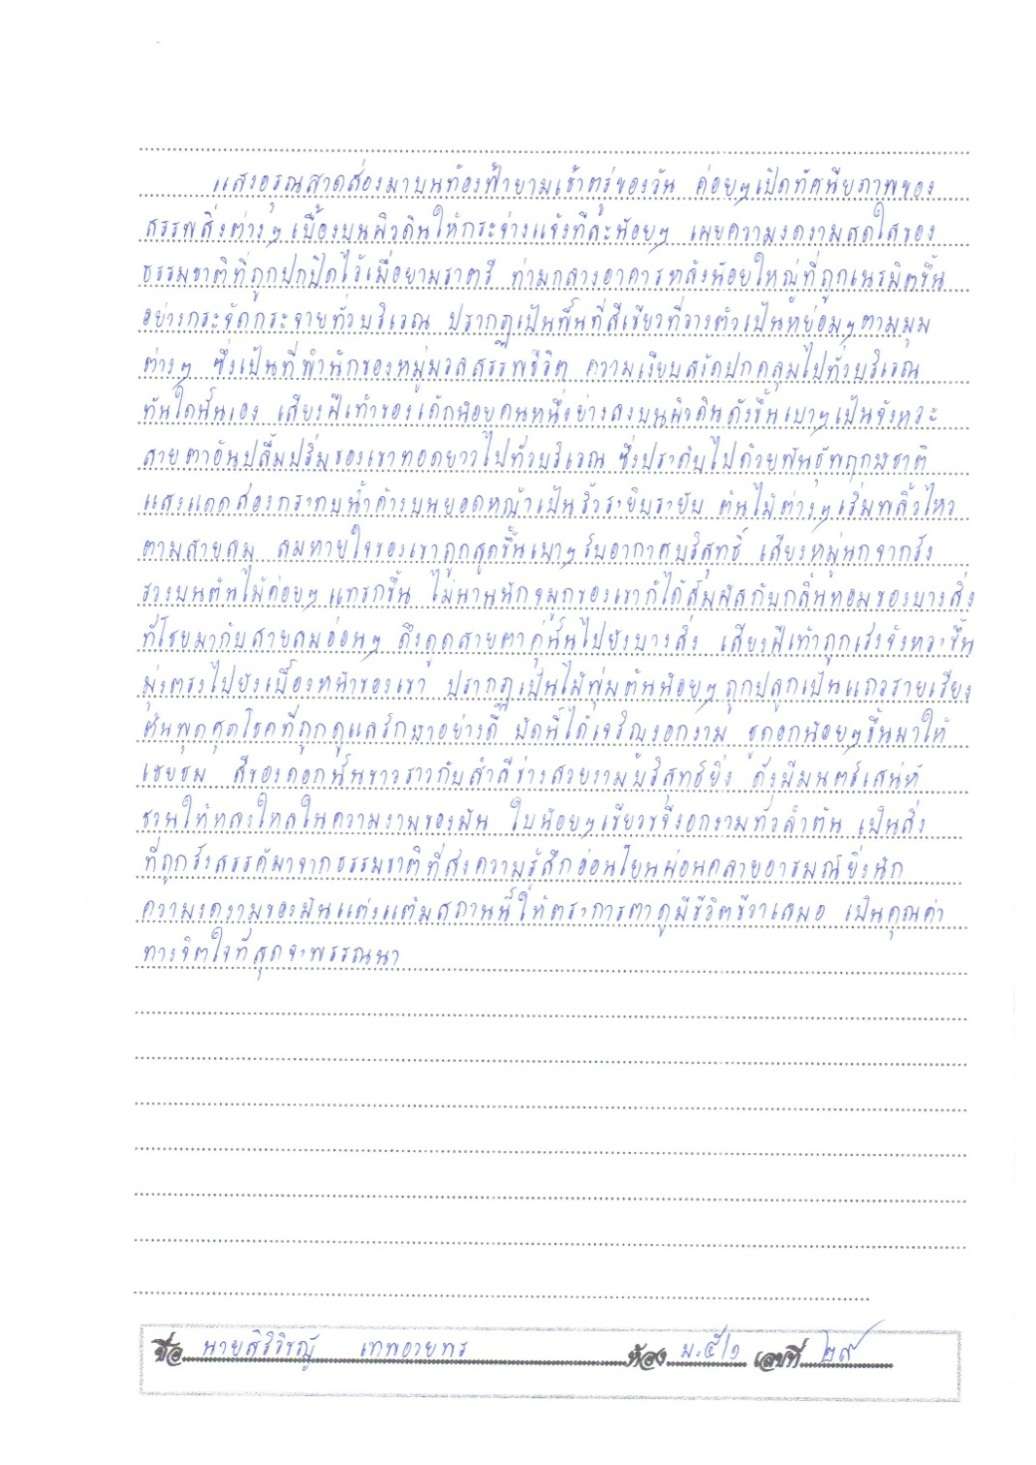 แสงอรุณสาดส่องมาบนท้องฟ้ายามเช้าตรู่ของวัน ค่อยๆเปิดทัศนียภาพของ
สรรพสิ่งต่างๆ เบื้องบนผิวดินให้กระจ่างแจ้งทีละน้อยๆ เผยความงดงามสดใสของ
ธรรมชาติที่ถูกปกปิดไว้เมื่อยามราตรี ท่ามกลางอาคารหลังน้อยใหญ่ที่ถูกเนรมิตขึ้น
อย่างกระจัดกระจายทั่วบริเวณ ปรากฏเป็นพื้นที่สีเขียวที่วางตัวเป็นหย่อมๆตามมุม
ต่างๆ ซึ่งเป็นที่พำนักของหมู่มวลสรรพชีวิต ความเงียบสงัดปกคลุมไปทั่วบริเวณ
ทันใดนั้นเอง เสียงฝีเท้าของเด็กน้อยคนหนึ่งย่างลงบนผิวดินดังขึ้นเบาๆเป็นจังหวะ
สายตาอันปลื้มปริ่มของเขาทอดยาวไปทั่วบริเวณ ซึ่งประดับไปด้วยพันธุ์พฤกษชาติ
แสงแดดส่องกระทบน้ำค้างบนยอดหญ้าเป็นริ้วระยิบระยับ ต้นไม้ต่างๆเริ่มพลิ้วไหว
ตามสายลม ลมหายใจของเขาถูกสูดขึ้นเบาๆรับอากาศบริสุทธิ์ เสียงหมู่นกจากรัง
รวงบนต้นไม้ค่อยๆแทรกขึ้น ไม่นานนักจมูกของเขาก็ได้สัมผัสกับกลิ่นหอมของบางสิ่ง
ที่โชยมากับสายลมอ่อนๆ ดึงดูดสายตาคู่นั้นไปยังบางสิ่ง เสียงฝีเท้าถูกเร่งจังหวะขึ้น
มุ่งตรงไปยังเบื้องหน้าของเขา ปรากฏเป็นไม้พุ่มต้นน้อยๆถูกปลูกเป็นแถวรายเรียง
ต้นพุดศุภโชคที่ถูกดูแลรักษาอย่างดี บัดนี้ได้เจริญงอกงาม ชูดอกน้อยๆขึ้นมาให้
เชยชม สีของดอกนั้นขาวราวกับสำลีช่างสวยงามบริสุทธ์ยิ่ง ดังมีมนตร์เสน่ห์
ชวนให้หลงใหลในความงามของมัน ใบน้อยๆเขียวขจีงอกงามทั่วลำต้น เป็นสิ่ง
ที่ถูกรังสรรค์มาจากธรรมชาติที่ส่งความรู้สึกอ่อนโยนผ่อนคลายอารมณ์ยิ่งนัก
ความงดงามของมันแต่งแต้มสถานนี้ให้ตระการตาดูมีชีวิตชีวาเสมอ เป็นคุณค่า
ทางจิตใจที่สุดจะพรรณนา
ชื่อ นายสิริวิชญ์ เทพอวยพร ห้อง ม.๕/๑ เลขที่ ๒๙